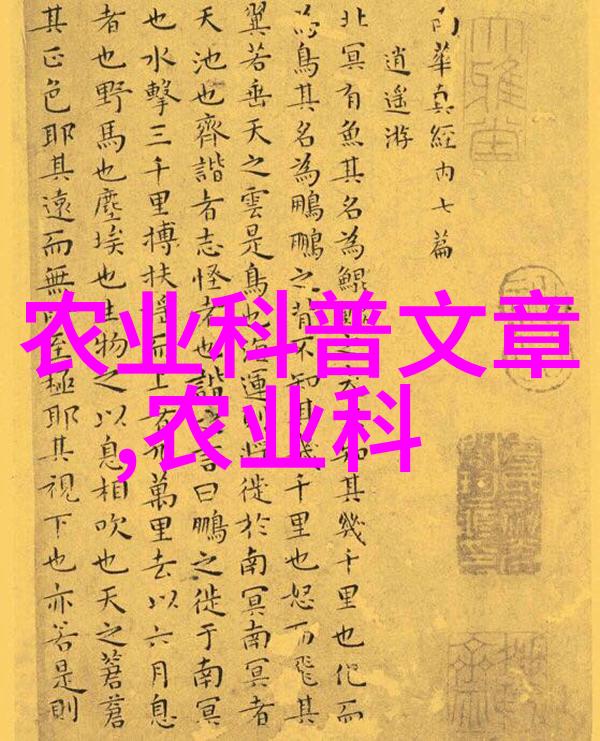 南華真經内七篇
逍遥游
北冥有魚其名為鯤之知其幾千里也化而
為鳥其名為鵬鵬之背不知其幾千里也怒而飛其
翼若垂天之雲是鳥也海運則將徙於南冥南冥者
天池也齊諧者志怪者也諧之言曰鵬之徙于南冥
也水擊三千里搏扶而上九萬里去以六月息
者也野馬也塵埃也生物之以息相吹也天之蒼蒼
其正色耶其遠而無至極耶其視下也亦若是則
大雅堂
农业科普文章
,农业科